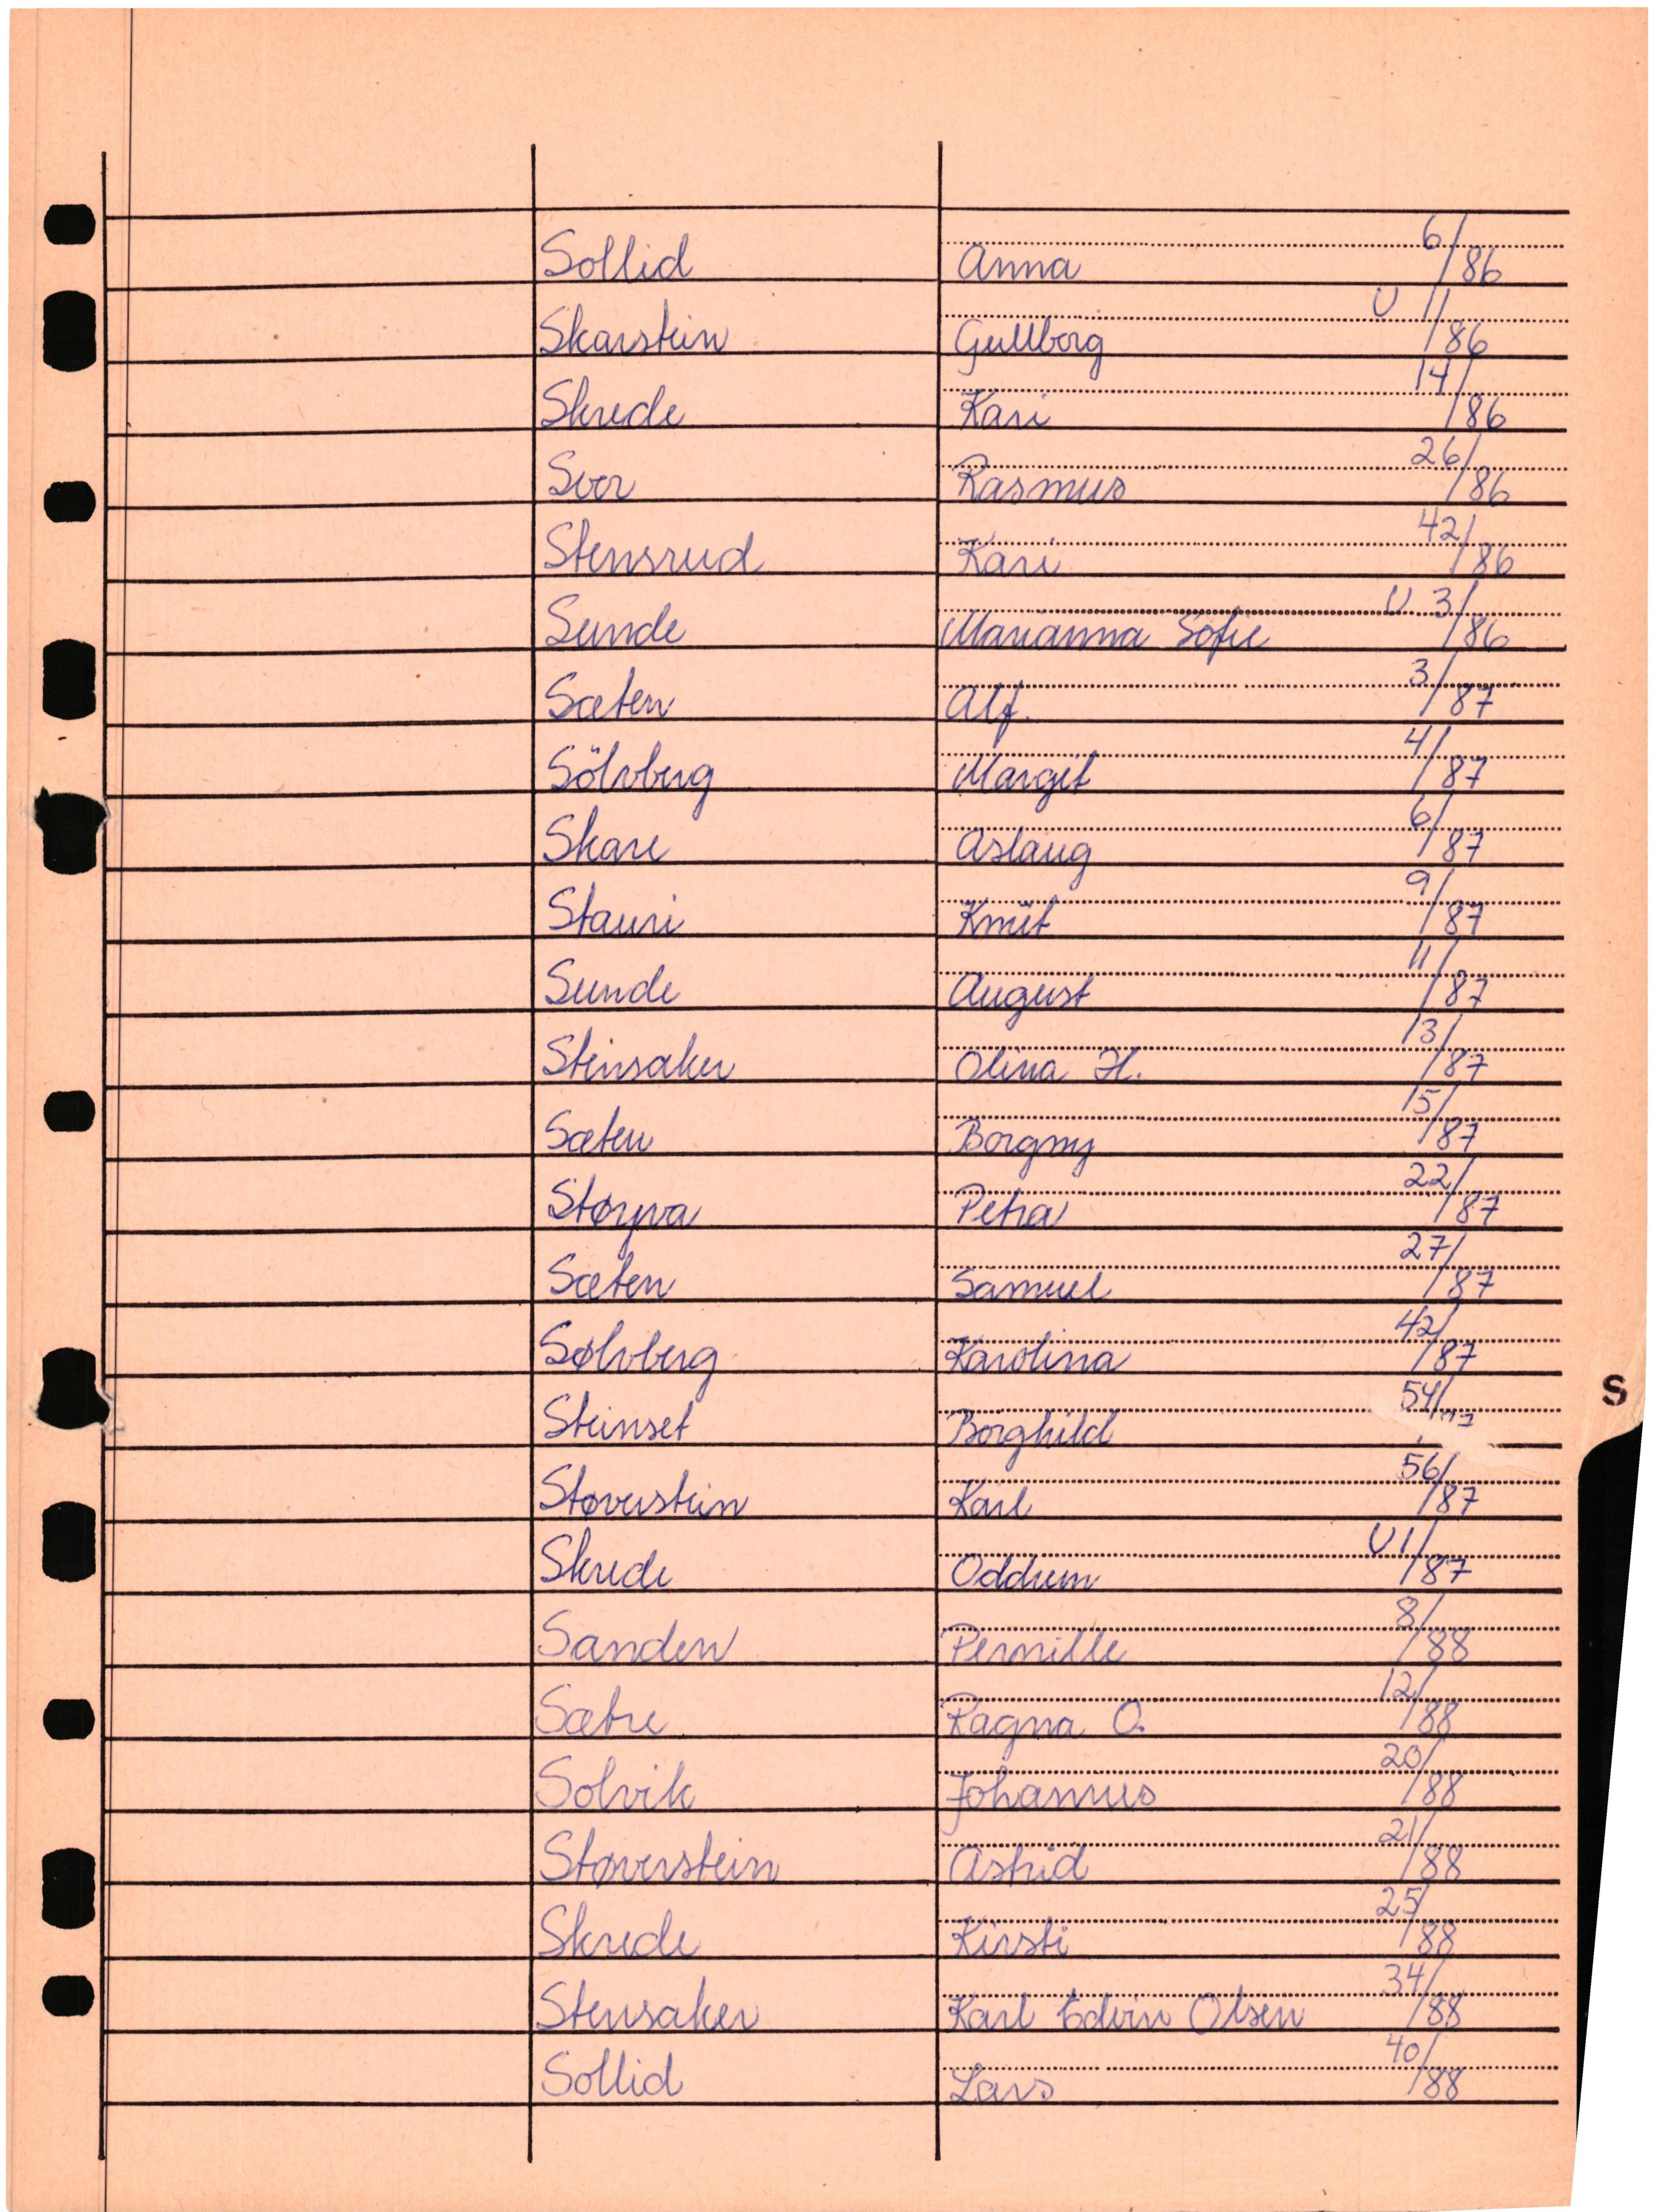 Sollid Anna 6/86
Skarstein Gullborg U 11/86
Skrede Kari 14/86
Svor Rasmus 26/86
Stensrud Kari 42/86
Sunde Marianna Sofie U 3/86
Sæten Alf. 3/87
Sölvberg Margit 4/87
Skare Aslaug 6/87
Stauri Knut 9/87
Sunde August 11/87
Steinsaker Olina H. 13/87
Sæten Borgny 15/87
Støyva Petra 22/87
Sæten Samuel 27/87
Sølvberg Karolina 42/87
Steinset Borghild 54/87
Støverstein Karl 56/87
Skrede Oddrun U 1/87
Sanden Pernille 8/88
Sætre Ragna O. 12/88
Solvik Johannes 20/88
Støverstein Astrid 21/88
Skrede Kirsti 25/88
Stensaker Karl Edvin Olsen 34/88
Sollid Lars 40/88
S